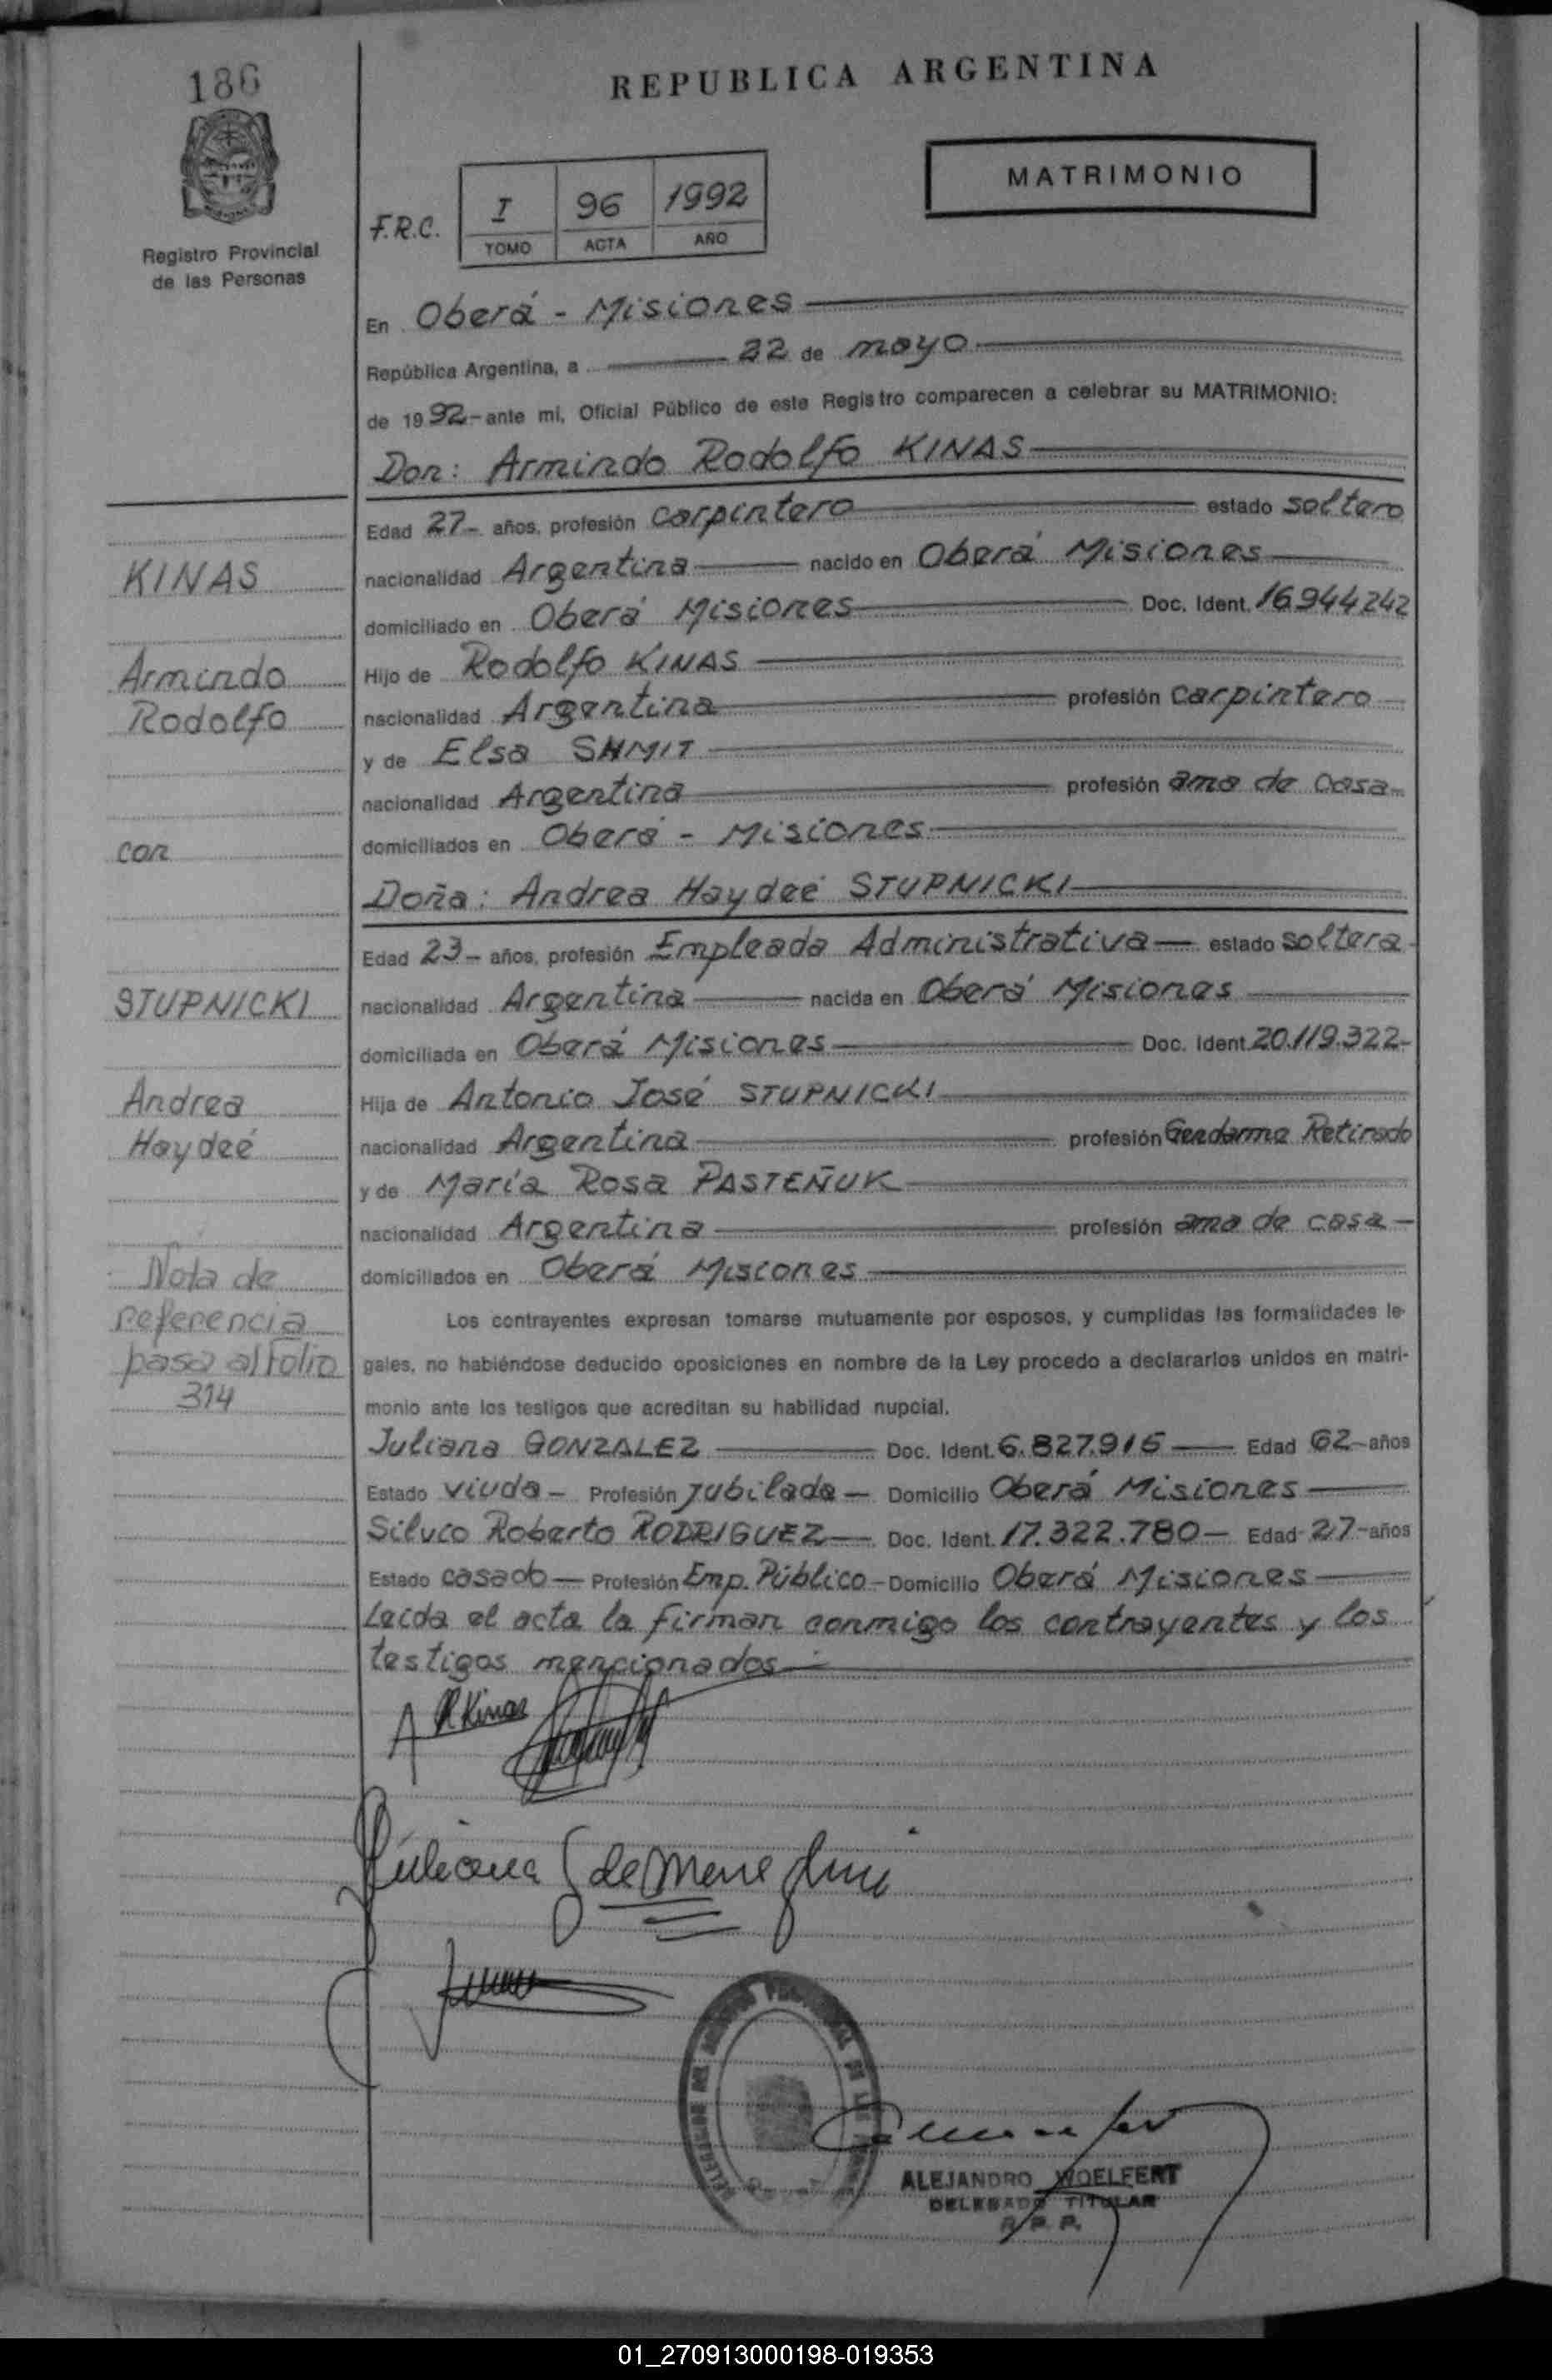 186
REPUBLICA ARGENTINA
MATRIMONIO
F.R.C.
I 96 1992
TOMO ACTA AÑO
Registro Provincial
de las Personas
En Oberá - Misiones
República Argentina, a 22 de mayo
de 1992 - ante mi, Oficial Público de este Registro comparecen a celebrar su MATRIMONIO:
Don: Armindo Rodolfo KINAS
Edad 27 - años, profesión carpintero estado soltero
nacionalidad Argentina nacido en Oberá Misiones
domiciliado en Oberá Misiones Doc. Ident. 16.944242
Hijo de Rodolfo KINAS
nacionalidad Argentina profesión carpintero
y de Elsa SHMIT
nacionalidad Argentina profesión ama de casa
domiciliados en Oberá - Misiones
Doña: Andrea Haydeé STUPNICKI
Edad 23 - años, profesión Empleada Administrativa estado soltera
nacionalidad Argentina nacida en Oberá Misiones
domiciliada en Oberá Misiones Doc. Ident. 20.119.322-
Hija de Antonio José STUPNICKI
nacionalidad Argentina profesión Gendarme Retirado
y de María Rosa PASTEÑUK
nacionalidad Argentina profesión ama de casa
domiciliados en Oberá Misiones
Los contrayentes expresan tomarse mutuamente por esposos, y cumplidas las formalidades le-
gales, no habiéndose deducido oposiciones en nombre de la Ley procedo a declararlos unidos en matri-
monio ante los testigos que acreditan su habilidad nupcial.
Juliana GONZALEZ Doc. Ident. 6.827.915 Edad 62 - años
Estado viuda - Profesión jubilada - Domicilio Oberá Misiones
Silvio Roberto RODRIGUEZ Doc. Ident. 17.322.780 - Edad 27 - años
Estado casado - Profesión Emp. Público - Domicilio Oberá Misiones
Leída el acta la firman conmigo los contrayentes y los
testigos mencionados
KINAS
Armindo
Rodolfo
con
STUPNICKI
Andrea
Haydeé
Nota de
referencia
pasa al folio
314
A R Kinas
Juliana G de
ALEJANDRO WOELFERT
DELEGADO TITULAR
R. P. P.
01_270913000198-019353